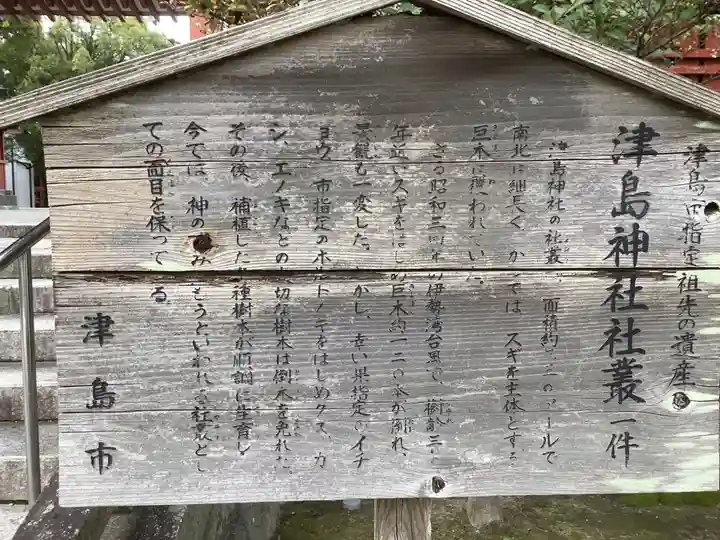 津島市指定 祖先の遺産
津島神社社叢 一件
津島神社の社叢は、面積約 アールで
南北に細長く、かつては、スギを主体とする
巨木に覆われていた。
さる昭和三四年の伊勢湾台風で、樹齢三〇〇
年近いスギをはじめ巨木約一二〇本が倒れ、
景観も一変した。しかし、幸い県指定のイチ
ョウ、市指定のホルトノキをはじめクス、カ
シ、エノキなどの大切な樹木は倒木を免れた。
その後、補植した各種樹木が順調に生育し
今では、神の みもうといわれる社叢とし
ての面目を保っている。
津島市